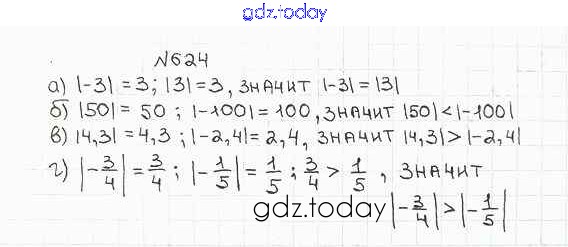 gdz.today
№624
а) |-3| = 3; |3| = 3, значит |-3| = |3|
б) |50| = 50; |-100| = 100, значит |50| < |-100|
в) |4,3| = 4,3; |-2,4| = 2,4, значит |4,3| > |-2,4|
г) |-3/4| = 3/4; |-1/5| = 1/5; 3/4 > 1/5, значит
gdz.today |-3/4| > |-1/5|